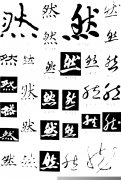 然 然 然
然 然 然
然 然 然 然 然 然
然 然 然 然 然
然 然 然 然 然
然 然 然 然 然
然 然 然 然